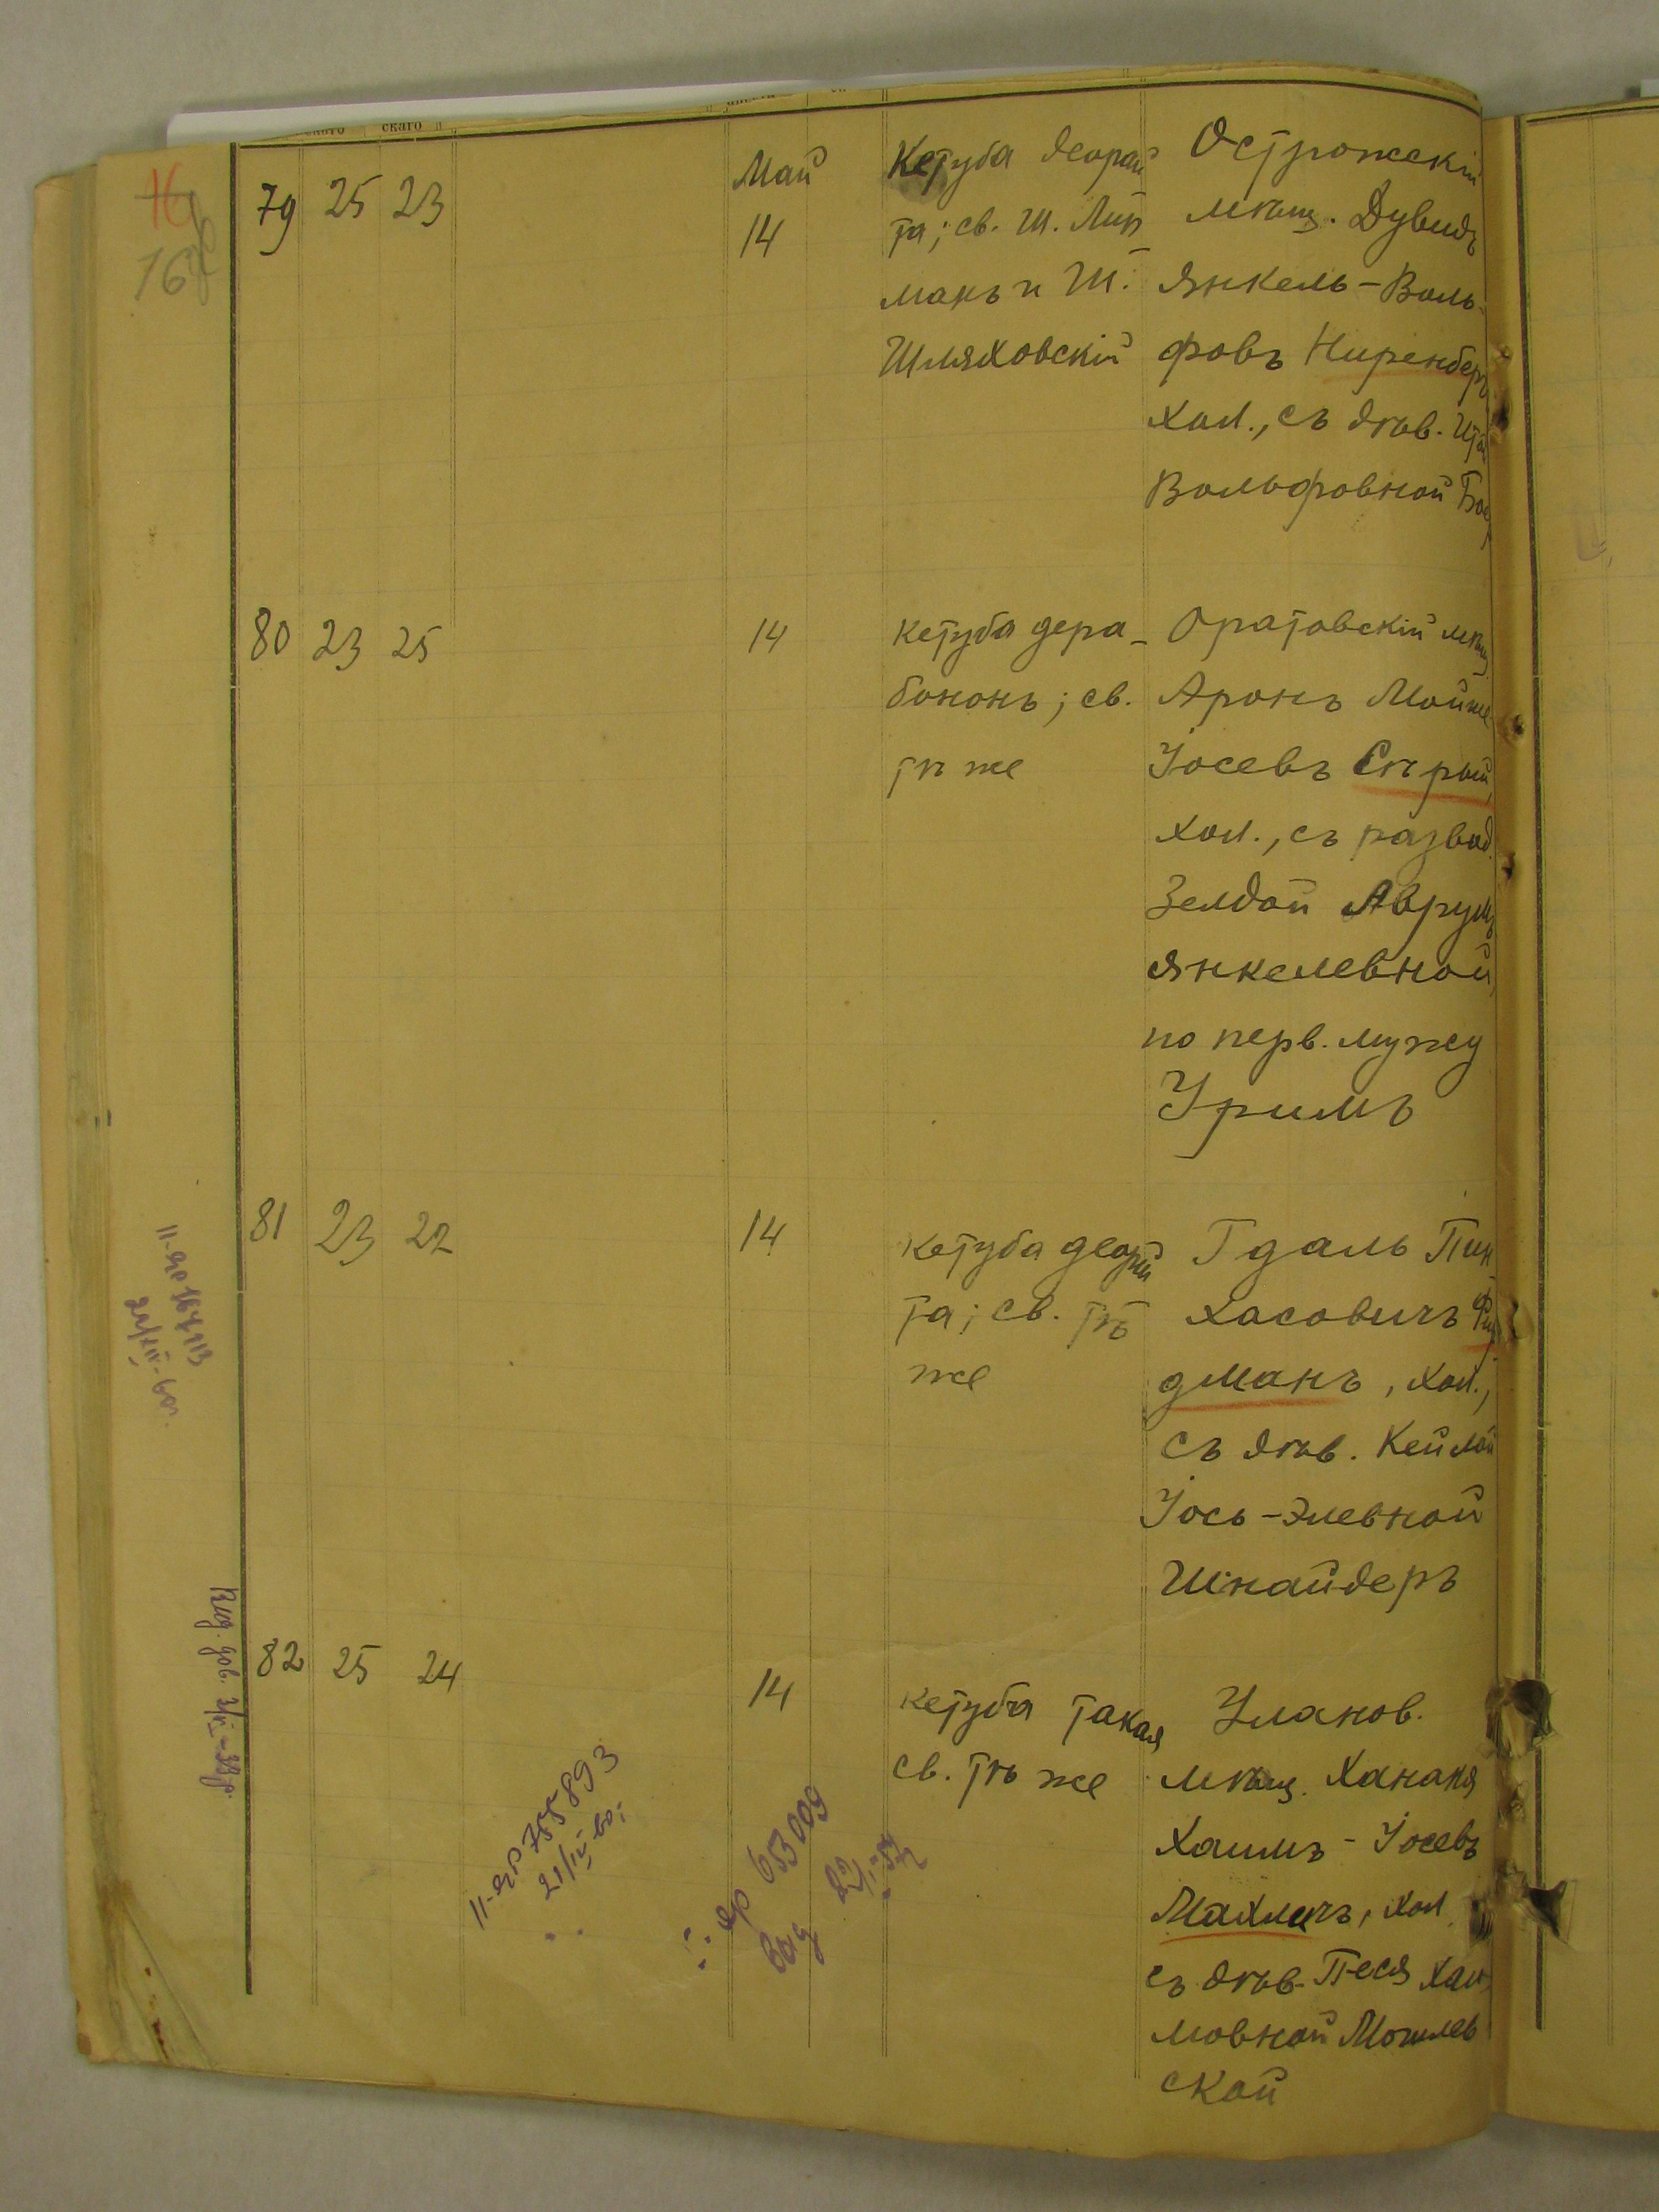 скаго
79 25 23 Май 14
Кетуба деорай
та; св. Ш. Лип
манъ и Ш.
Шляховскій
Острожскій
мѣщ. Дувидъ
Янкель-Воль-
фовъ Ниренберг
хол., съ дѣв.
Вольфовной
80 23 25 14
Кетуба дера-
бононъ; св.
тѣ же
Оратовскій мѣщ
Аронъ Мойше
Іосевъ Сѣрый,
хол., съ развод.
Зелдой Аврумъ
Янкелевной,
по перв. мужу
Уримъ
81 23 22 14
Кетуба деорай
та; св. тѣ
же
Гдаль Пин
хасовичъ Фри
дманъ, хол.,
съ дѣв. Кейлой
Іось-Элевной
Шнайдеръ
82 25 24 14
Кетуба такая
св. тѣ же
Уланов.
мѣщ. Хананя
Хаимъ-Іосевъ
Махличъ, хол.
съ дѣв. Песя Хаи
мовной Могилев
ской
II-яр 755893
21/IV-60г
яр 653009
выд
Выд. дов.